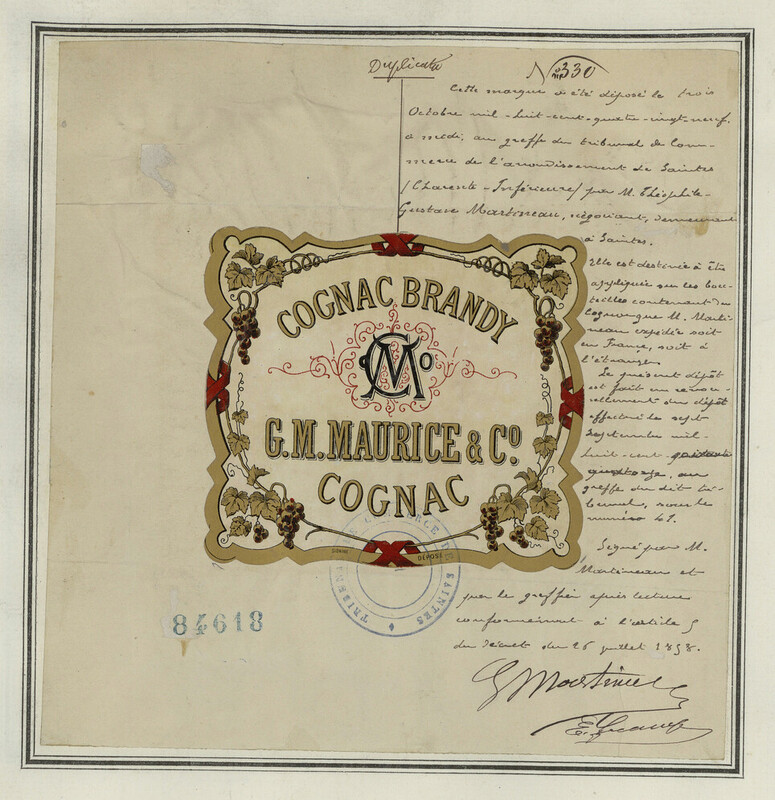 Duplicata
N° 330
Cette marque a été déposé le trois
Octobre mil-huit-cent-quatre-vingt-neuf,
à midi, au greffe du tribunal de Com-
merce de l'arrondissement de Saintes
(Charente-Inférieure) par M. Théophile-
Gustave Martineau, négociant, demeurant
à Saintes.
Elle est destinée à être
appliquée sur les bou-
teilles contenant du
Cognac que M. Marti-
neau expédie soit
en France, soit à
l'étranger.
Le présent dépôt
est fait en renou-
vellement du dépôt
effectué le sept
Septembre mil-
huit-cent-
quatorze, au
greffe du dit tri-
bunal, sous le
numéro 41.
Signé par M.
Martineau et
par le greffier après lecture
conformément à l'article 5
du décret du 26 juillet 1858.
G Martineau
COGNAC BRANDY
CMo
G.M. MAURICE & Co.
COGNAC
DÉPOSÉ
TRIBUNAL DE COMMERCE DE SAINTES
84618